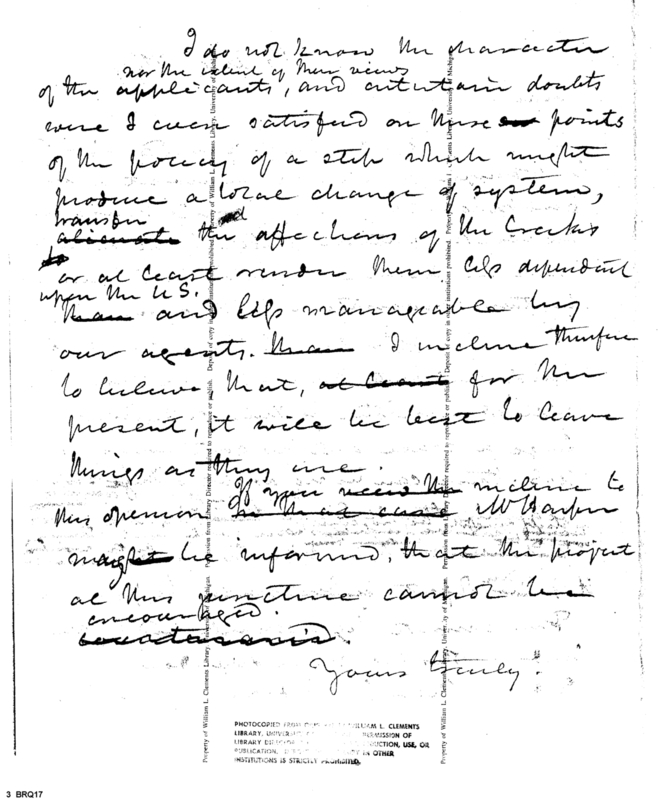 I do not know the character
nor the extent of their views
of the applicants, and entertain doubts
were I even satisfied on these points
of the policy of a step which might
produce a local change of system,
transfer
alienate the affections of the Creeks
or at least render them less dependent
upon the U.S.
than and less manageable by
our agents. than I incline therefore
to believe that, at least for the
present, it will be best to leave
things as they are.
If you incline to
this opinion in that case Mr Harper
might be informed, that the project
at this juncture cannot be
encouraged.
countenanced.
Yours truly.
Property of William L. Clements Library, University of Michigan. Permission from Library Director required to reproduce or publish. Deposit of copy in other institutions prohibited.
PHOTOCOPIED FROM WILLIAM L. CLEMENTS
LIBRARY, UNIVERSITY PERMISSION OF
LIBRARY DIRECTOR REPRODUCTION, USE, OR
PUBLICATION. IN OTHER
INSTITUTIONS IS STRICTLY PROHIBITED.
3 BRQ17